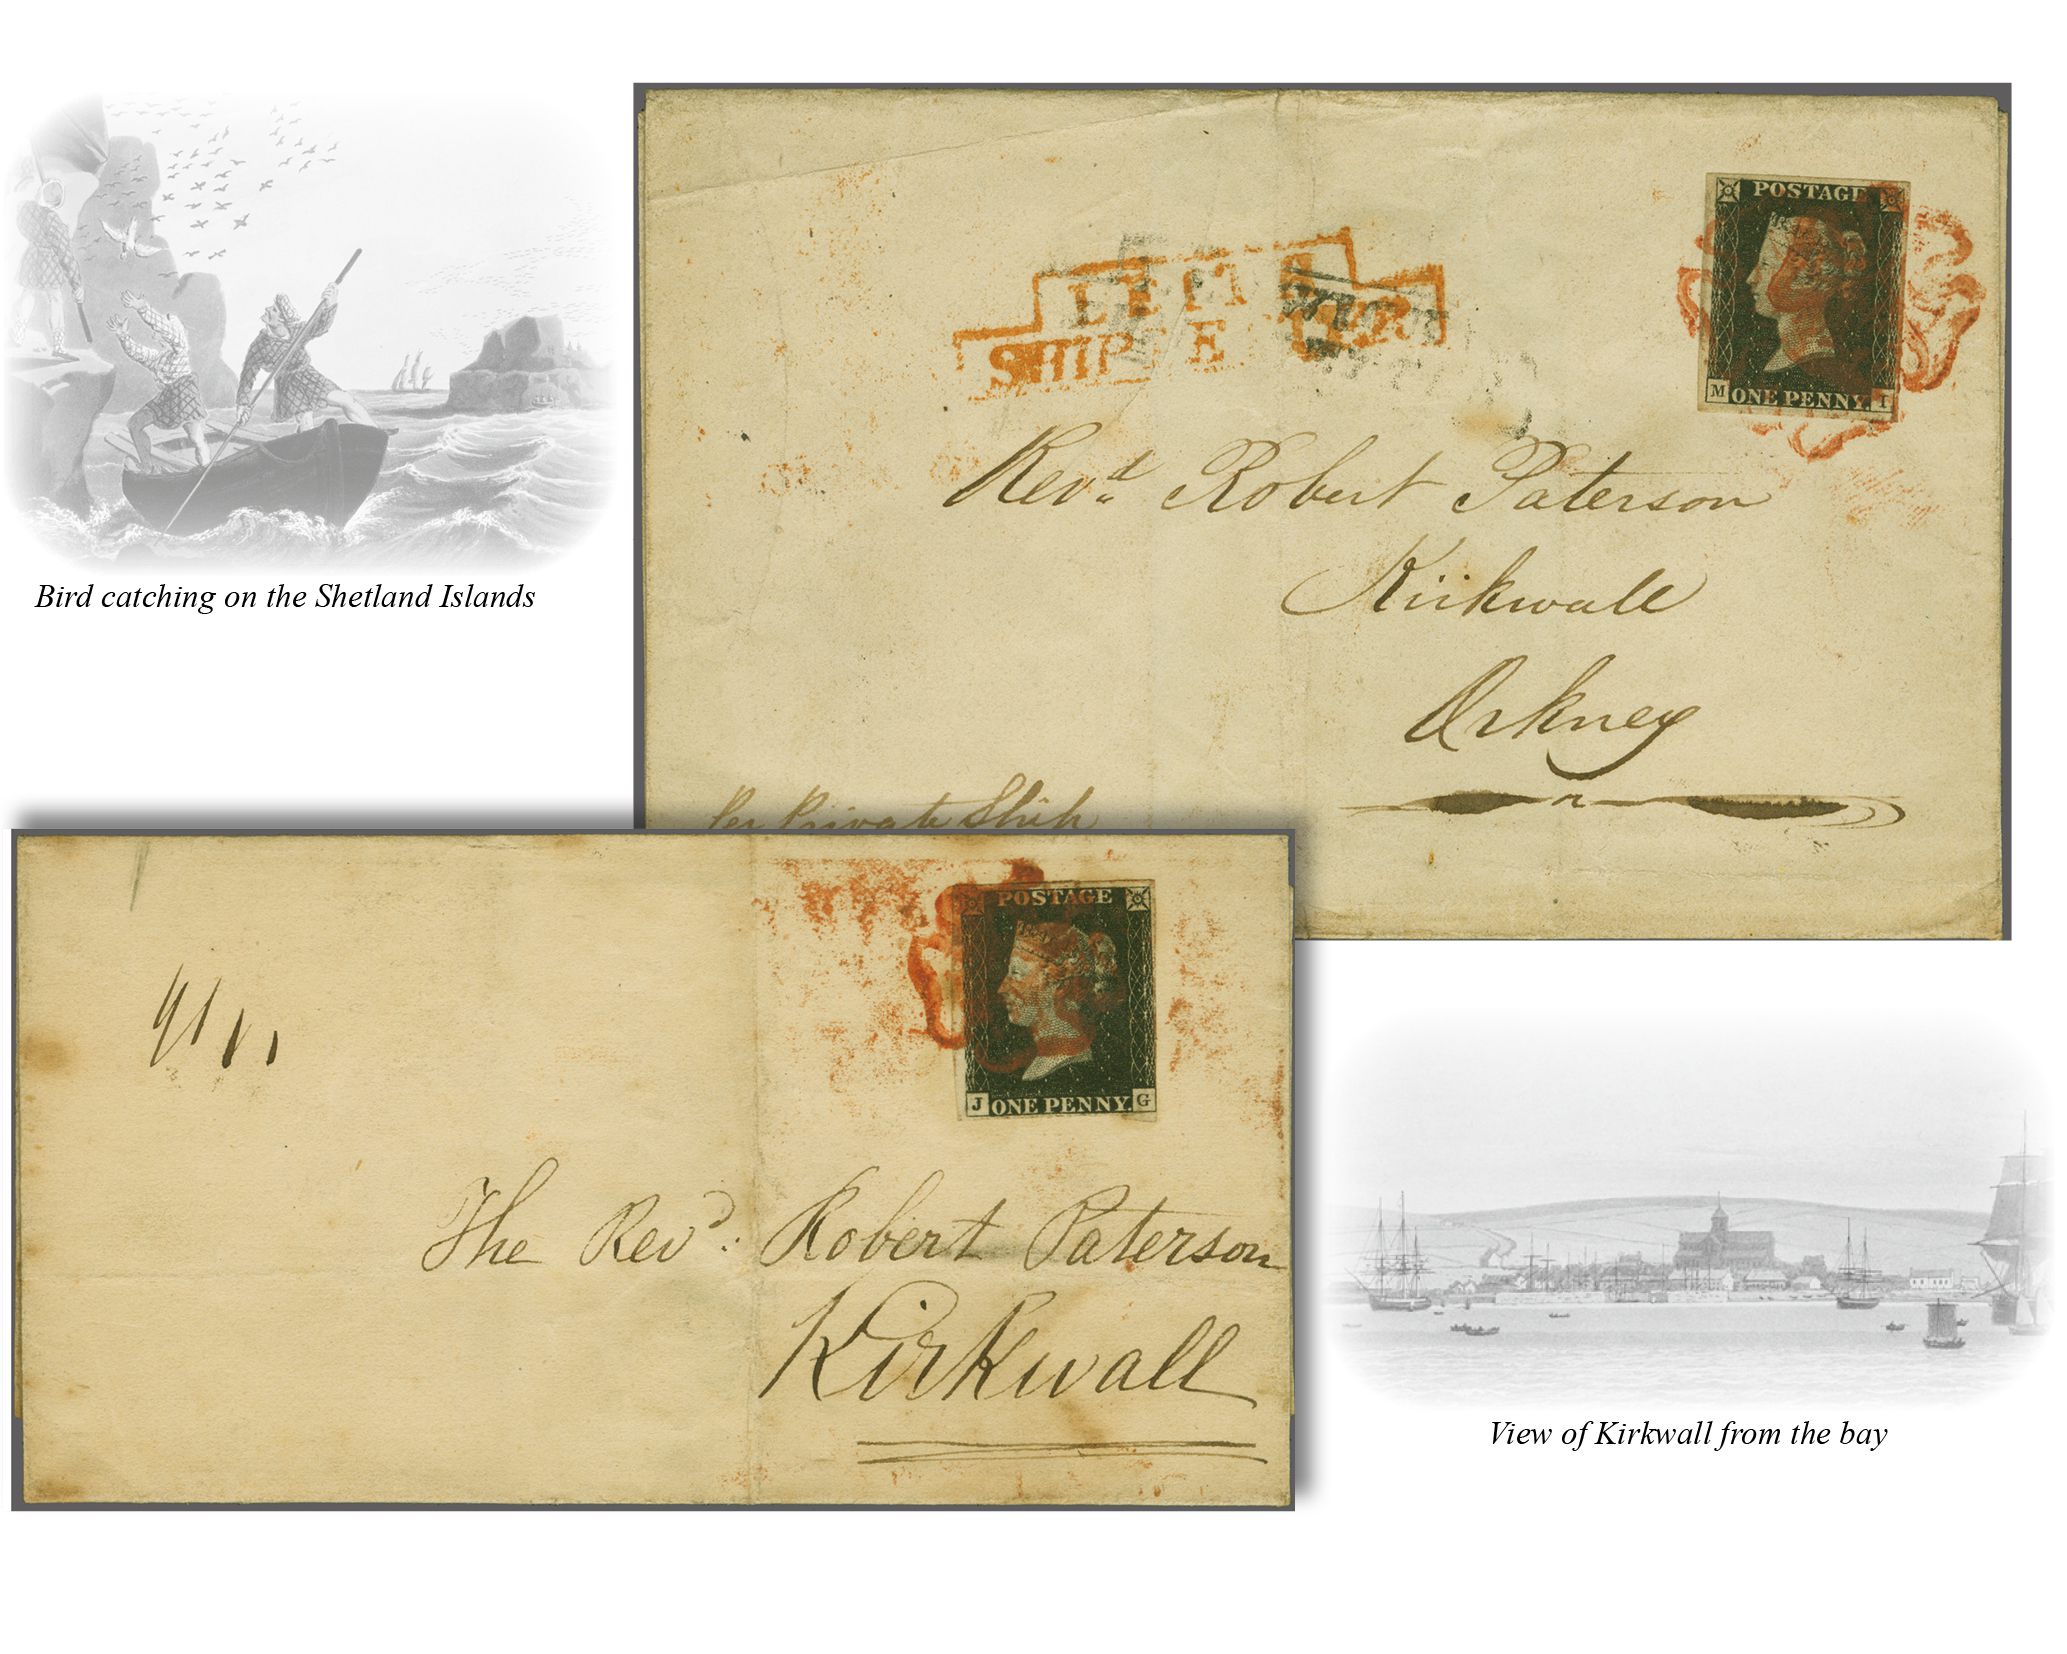 Bird catching on the Shetland Islands
POSTAGE
M ONE PENNY. I
LEITH
SHIP LETTER
Revd Robert Paterson
Kirkwall
Orkney
Per Private Ship
POSTAGE
J ONE PENNY. G
The Revd: Robert Paterson
Kirkwall
View of Kirkwall from the bay